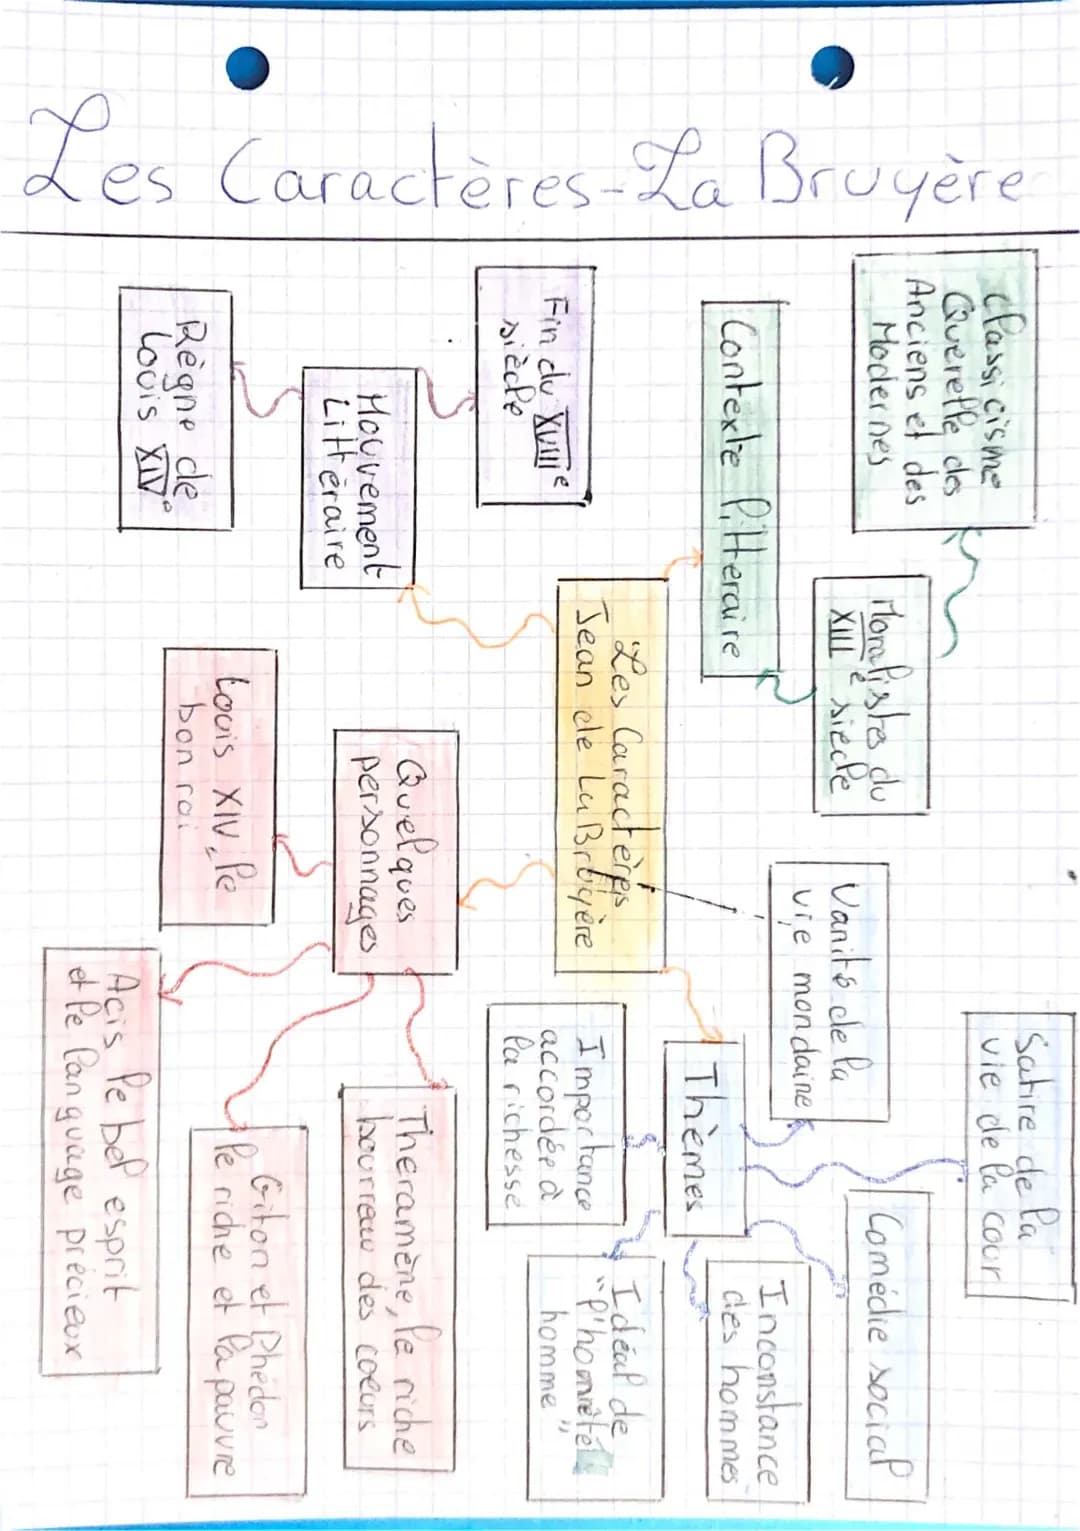 Les Caractères-La Bruyère
Classicisme
Querelle des
Anciens et des
Modernes
Moralistes du
XIII e siècle
Contexte litteraire
Fin du XVIIIe
siècle
Mouvement
Littéraire
Règne de
Louis XIVe
Les Caractères
Jean de La Bruyère
Vanité de la
vie mondaine
Satire de la
vie de la cour
Comédie social
Thèmes
Inconstance
des hommes
Importance
accordée à
la richesse
Idéal de
"l'homnête
homme"
Quelques
personnages
Louis XIV, le
bon roi
Theramène, le riche
bourreau des coeurs
Giton et Phédon
le riche et la pauvre
Acis, le bel esprit
et le language précieux